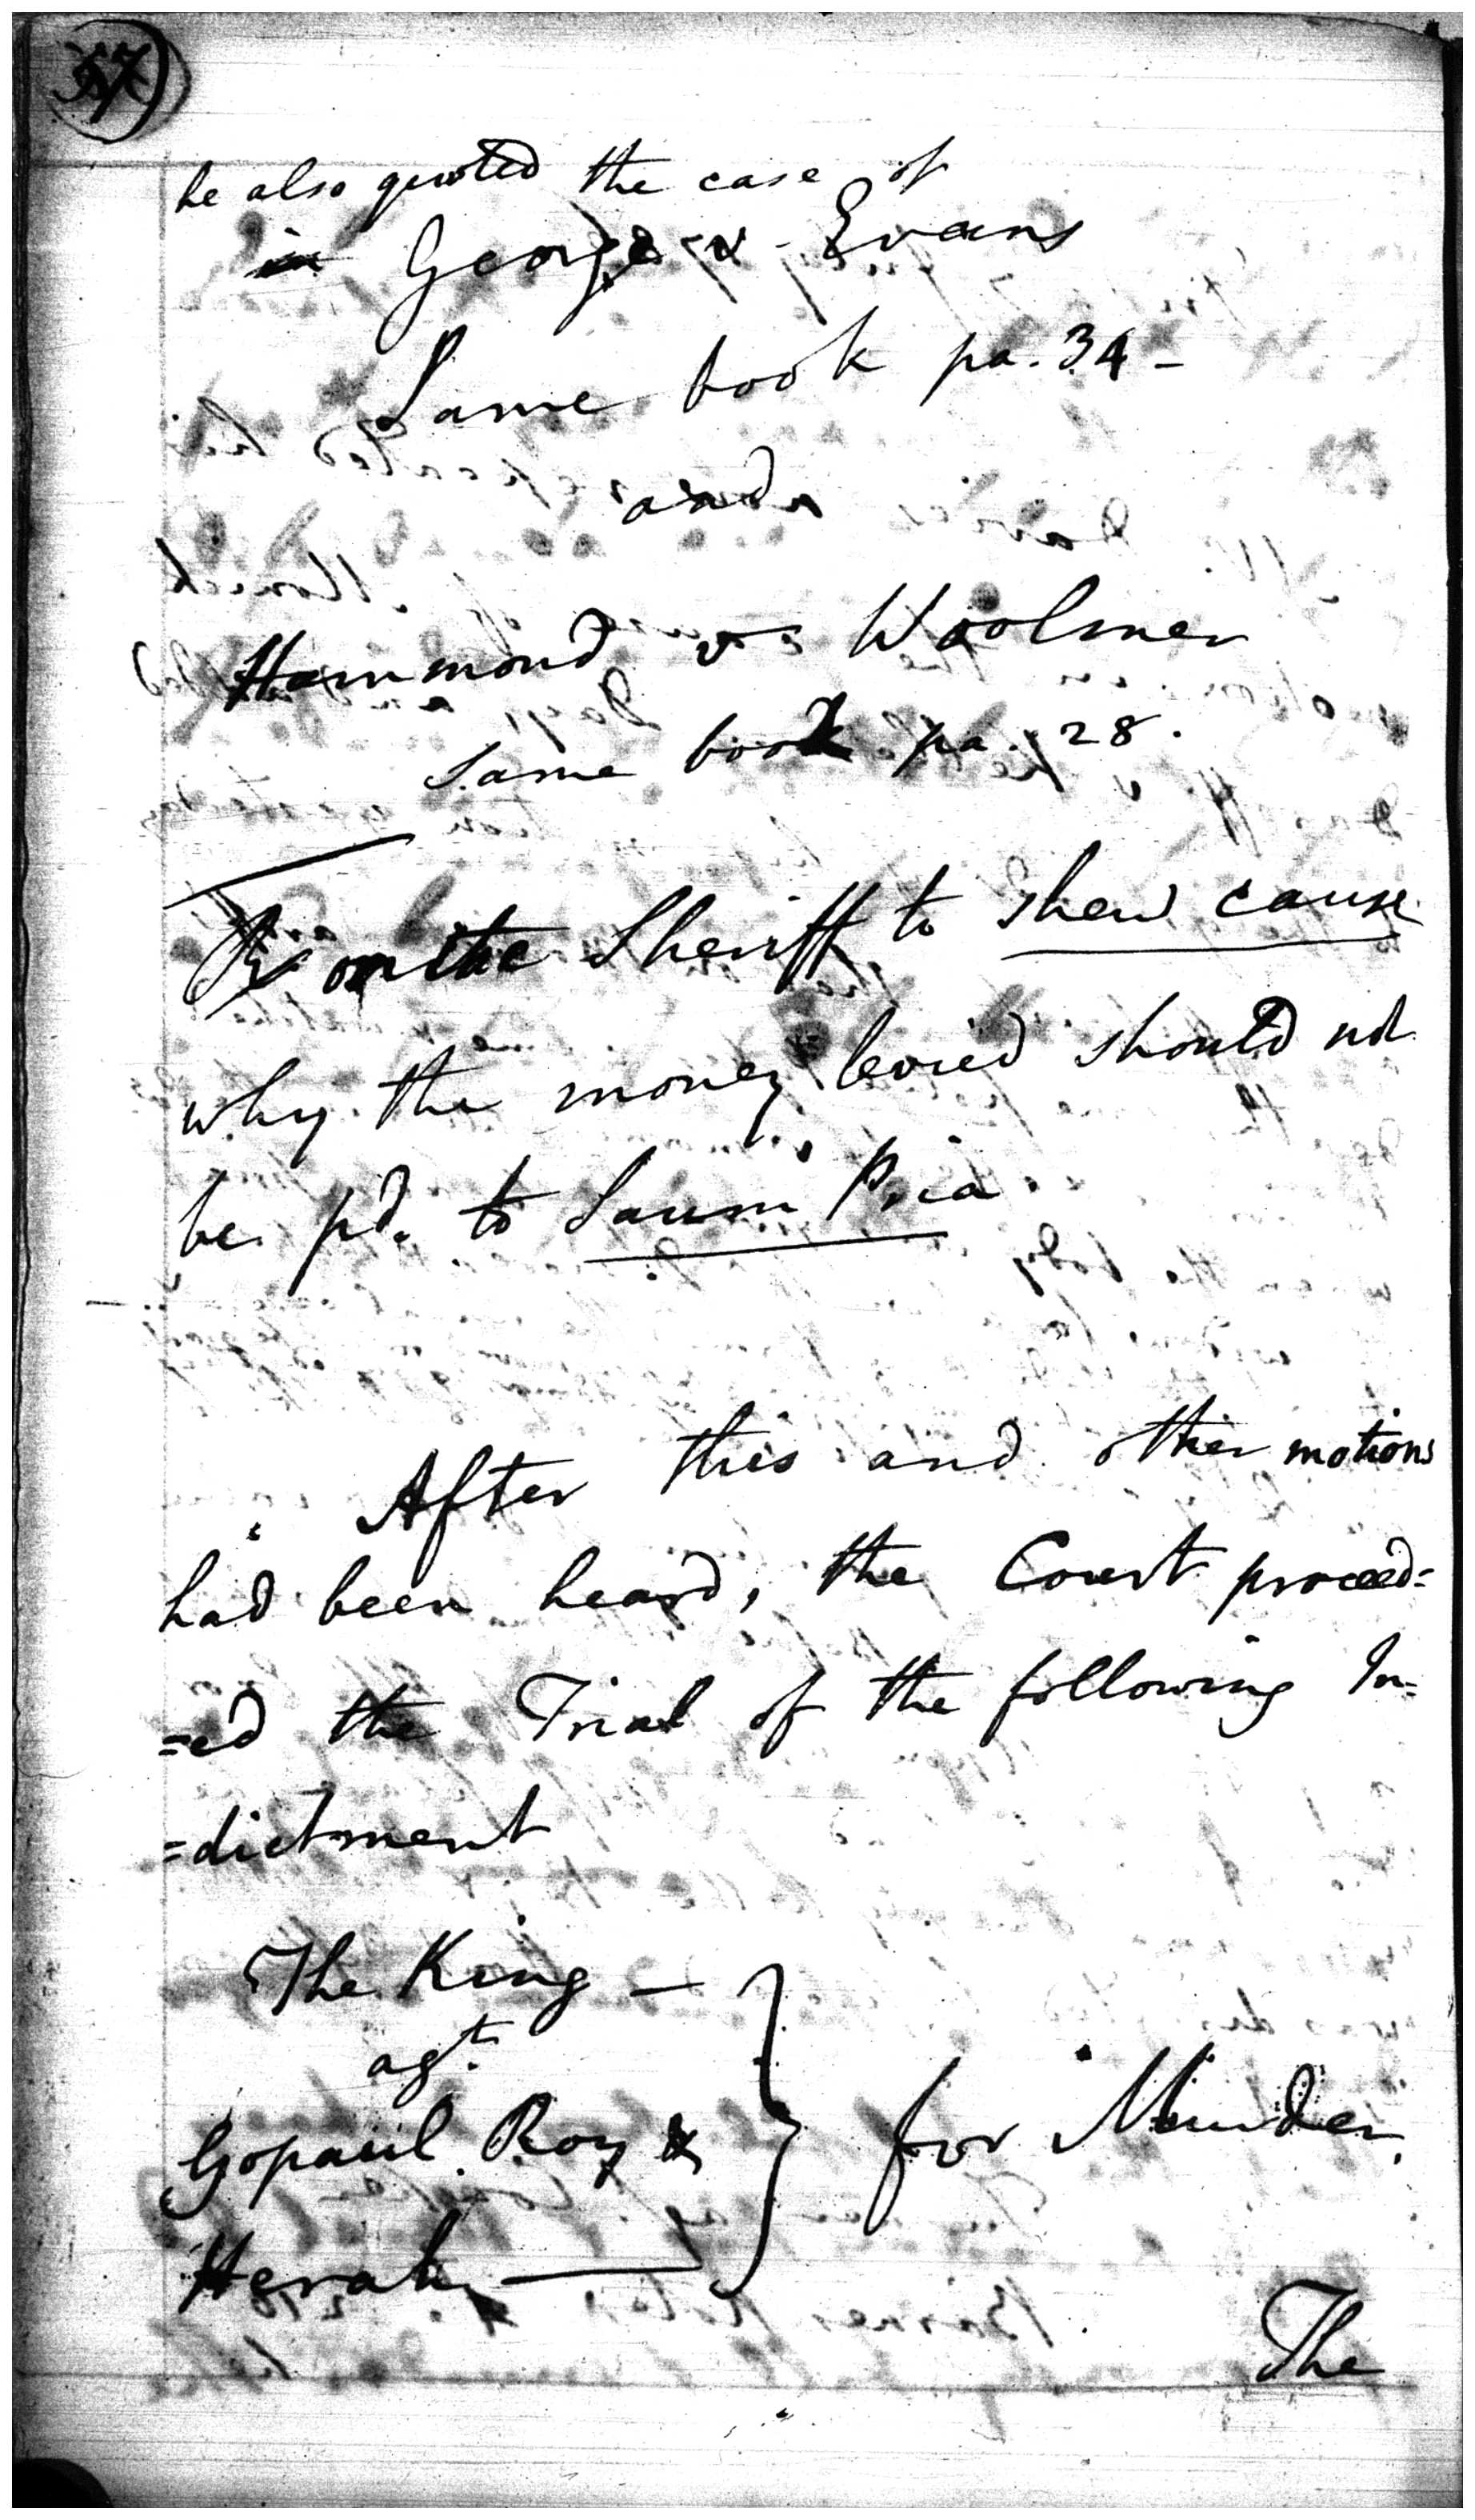 he also quoted the case of
in George v Evans
Same book pa. 34 -
and
Hammond vs Woolmer
same book pa. 28.
on the Sheriff to shew cause
why the money levied should not
be pd. to
After this and other motions
had been heard, the Court proceed=
=ed the Trial of the following In=
=dictment
The King —
agt.
Gopaul Roy &
for Murder.
The